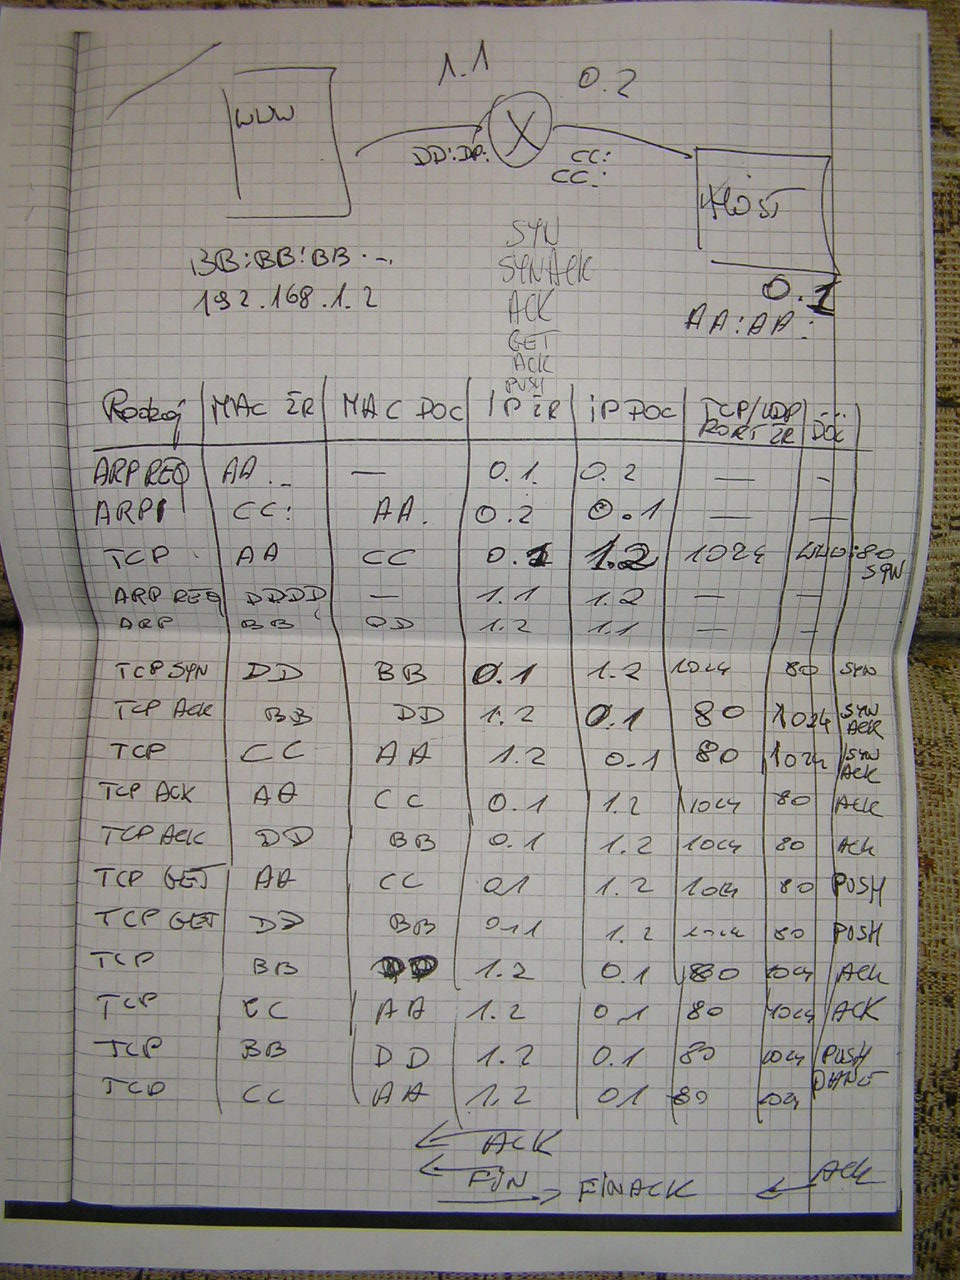 1.1
0.2
WWW
DD:DD:
CC:
CC:
HOST
BB:BB:BB...
192.168.1.2
0.1
AA:AA:
SYN
SYNACK
ACK
GET
ACK
PUSH
Rodzaj MAC ŹR MAC DOC IP ŹR IP DOC TCP/UDP PORT ŹR DOC
ARP REQ AA.. — 0.1 0.2 — –
ARP CC: AA. 0.2 0.1 — —
TCP AA CC 0.1 1.2 1024 :80 SYN
ARP REQ DDDD — 1.1 1.2 — —
ARP BB DD 1.2 1.1 — –
TCP SYN DD BB 0.1 1.2 1024 80 SYN
TCP ACK BB DD 1.2 0.1 80 1024 SYN ACK
TCP CC AA 1.2 0.1 80 1024 SYN ACK
TCP ACK AA CC 0.1 1.2 1024 80 ACK
TCP ACK DD BB 0.1 1.2 1024 80 ACK
TCP GET AA CC 0.1 1.2 1024 80 PUSH
TCP GET DD BB 0.1 1.2 1024 80 PUSH
TCP BB DD 1.2 0.1 80 1024 ACK
TCP CC AA 1.2 0.1 80 1024 ACK
TCP BB DD 1.2 0.1 80 1024 PUSH
TCP CC AA 1.2 0.1 80 1024 DANE
ACK
FIN
FINACK
ACK